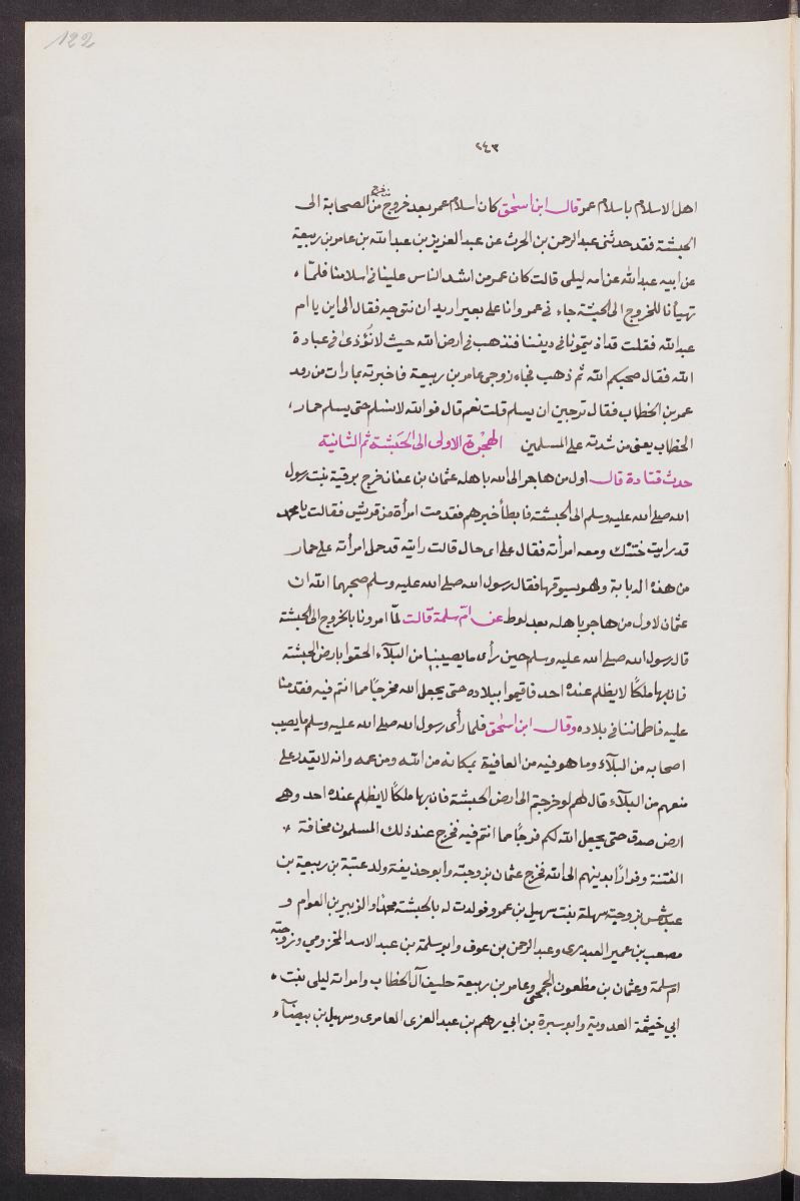 122
٢٤٣
اهل الاسلام باسلام عمر قال ابن اسحٰق كان اسلام عمر بعد خروج من خرج من الصحابة الى
الحبشة فقد حدثنى عبد الرحمن بن الحرث عن عبد العزيز بن عبد الله بن عامر بن ربيعة
عن ابيه عبد الله عن امه ليلى قالت كان عمر من اشد الناس علينا فى اسلامنا فلمّا
تهيأنا للخروج الى الحبشة جاء نى عمر وانا على بعير اريد ان نتوجه فقال الى اين يا ام
عبد الله فقلت قد اذيتمونا فى ديننا فنذهب فى ارض الله حيث لا نُؤذىٰ فى عبادة
الله فقال صحبكم الله ثم ذهب فجاء زوجى عامر بن ربيعة فاخبرته بما رات من
عمر بن الخطاب فقال ترجين ان يسلم قلت نعم قال فوالله لا يسلم حتى يسلم حمار
الخطاب يعنى من شدته على المسلمين الهِجْرة الاولى الى الحَبَشة ثم الثانية
حدث قتادة قال اول من هاجر الى الله باهله عثمان بن عفان خرج برقية بنت رسول
الله صلى الله عليه وسلم الى الحبشة فابطأ خبرهم فقدمت امرأة من قريش فقالت يا محمد
قد رايت ختنك ومعه امرأته فقال على اى حال قالت رايته قد حمل امرأته على حمار
من هذه الدبابة وهو يسوقها فقال رسول الله صلى الله عليه وسلم صحبهما الله ان
عثمان لاول من هاجر باهله بعد لوط عن امّ سلمة قالت لمّا امرونا بالخروج الى الحبشة
قال رسول الله صلى الله عليه وسلم حين رأى ما يصيبنا من البلآء الحقوا بارض الحبشة
فان بها ملكًا لا يظلم عنده احد فاقيموا ببلاده حتى يجعل الله مخرجًا مما انتم فيه فقدمنا
عليه فاطمأننا فى بلاده وقال ابن اسحٰق فلما رأى رسول الله صلى الله عليه وسلم ما يصيب
اصحابه من البلآء وما هو فيه من العافية بمكانه من الله ومن عمه وانه لا يقدر على
منعهم من البلآء قال لهم لو خرجتم الى ارض الحبشة فان بها ملكًا لا يظلم عنده احد وهى
ارض صدق حتى يجعل الله لكم فرجًا مما انتم فيه فخرج عند ذلك المسلمون مخافة
الفتنة وفرارًا بدينهم الى الله فخرج عثمان بزوجته وابو حذيفة ولد عتبة بن ربيعة بن
عبد شمس بزوجته سهلة بنت سهيل بن عمرو فولدت له بالحبشة محمدًا والزبير بن العوام و
مصعب بن عمير العبدرى وعبد الرحمن بن عوف وابو سلمة بن عبد الاسد المخزومي وزوجته
ام سلمة وعثمان بن مظعون الجمحى وعامر بن ربيعة حليف آل الخطاب وامراته ليلى بنت
ابي خيثمة العدوية وابو سبرة بن ابي رهم بن عبد العزى العامرى وسهيل بن بيضآء